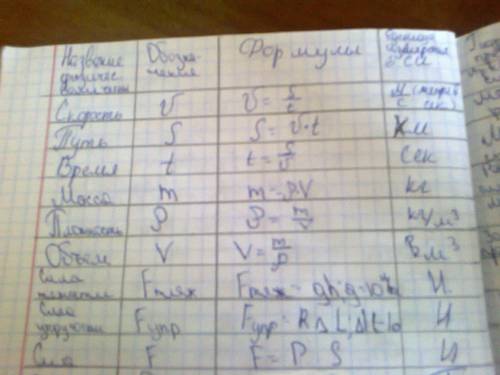 Название физичес величины | Обозначения | Формулы | Единица измерения в СИ
Скорость | V | V = S/t | м/с (метр/сек)
Путь | S | S = V·t | м
Время | t | t = S/V | сек
Масса | m | m = ρV | кг
Плотность | ρ | ρ = m/V | кг/м³
Объём | V | V = m/ρ | в м³
Сила тяжести | Fтяж | Fтяж =
Сила упругости | Fупр | Fупр = k Δ L;
Сила | F | F = P S | Н